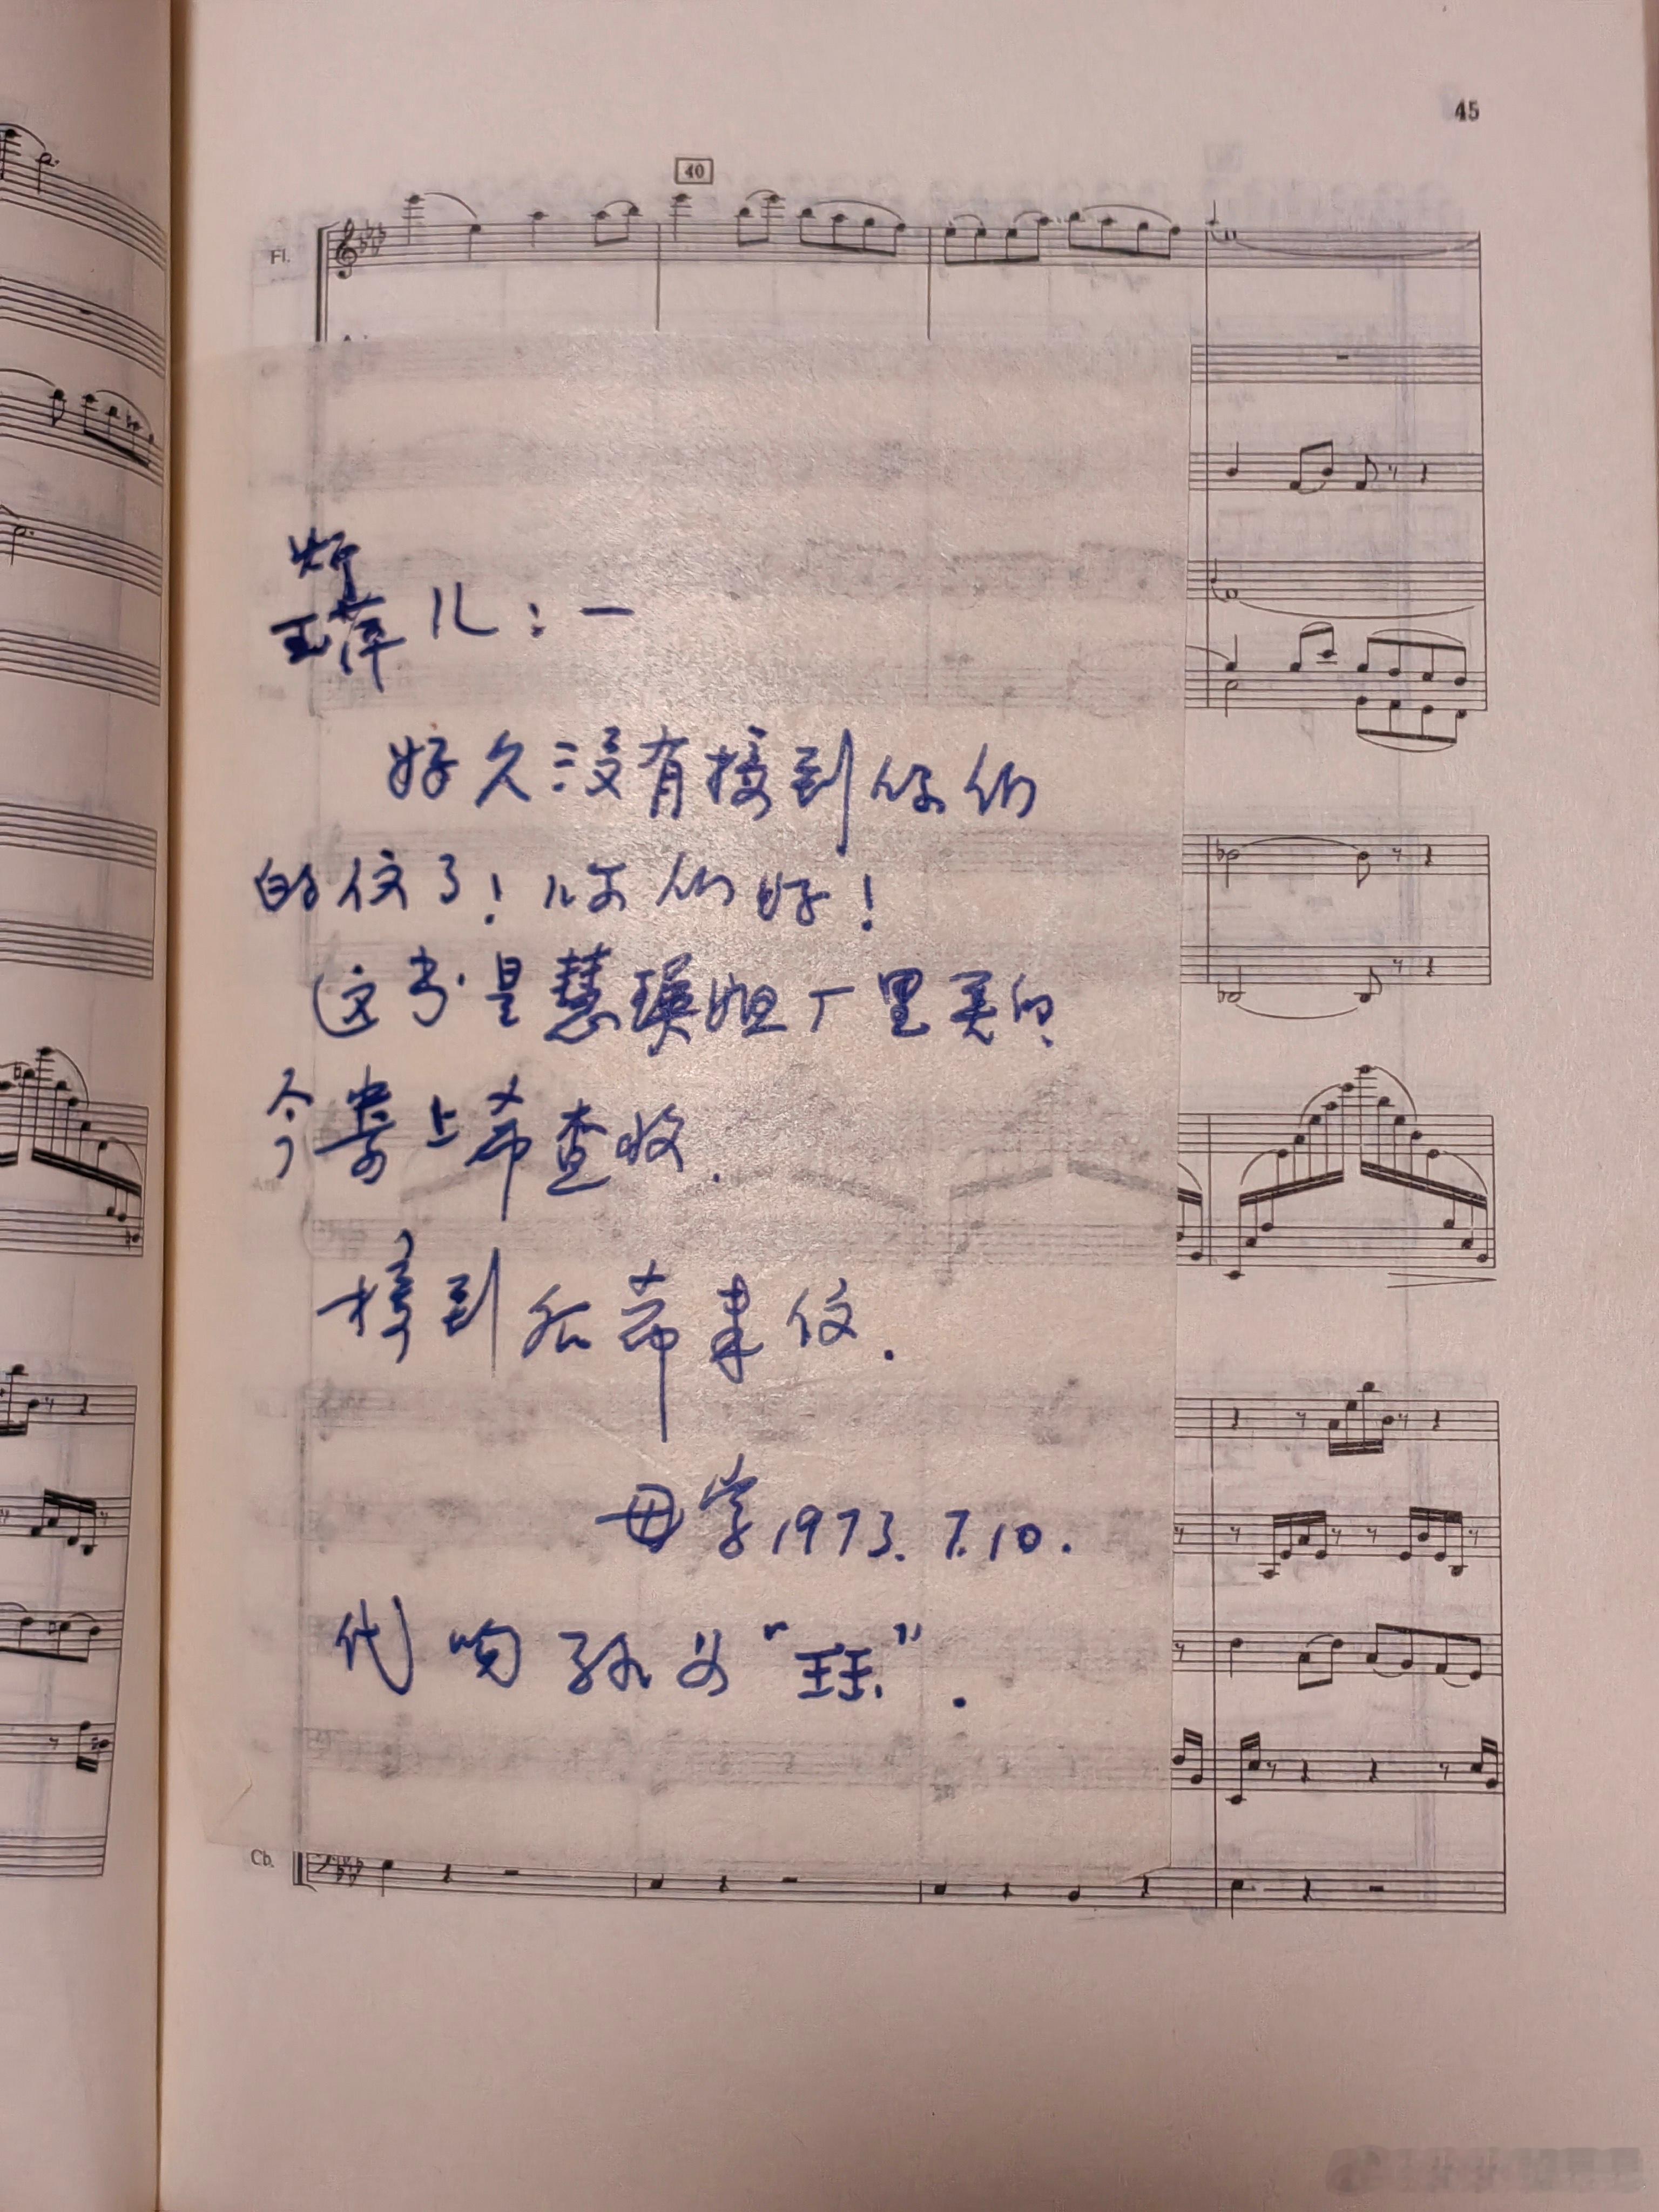 45
40
Fl.
炉
玉萍儿：—
好久没有接到你们
的信了！你们好！
这书是慧瑛姐厂里买的
今寄上希查收.
接到后希来信.
母字1973.7.10.
代吻孙女“珏”.
Cb.